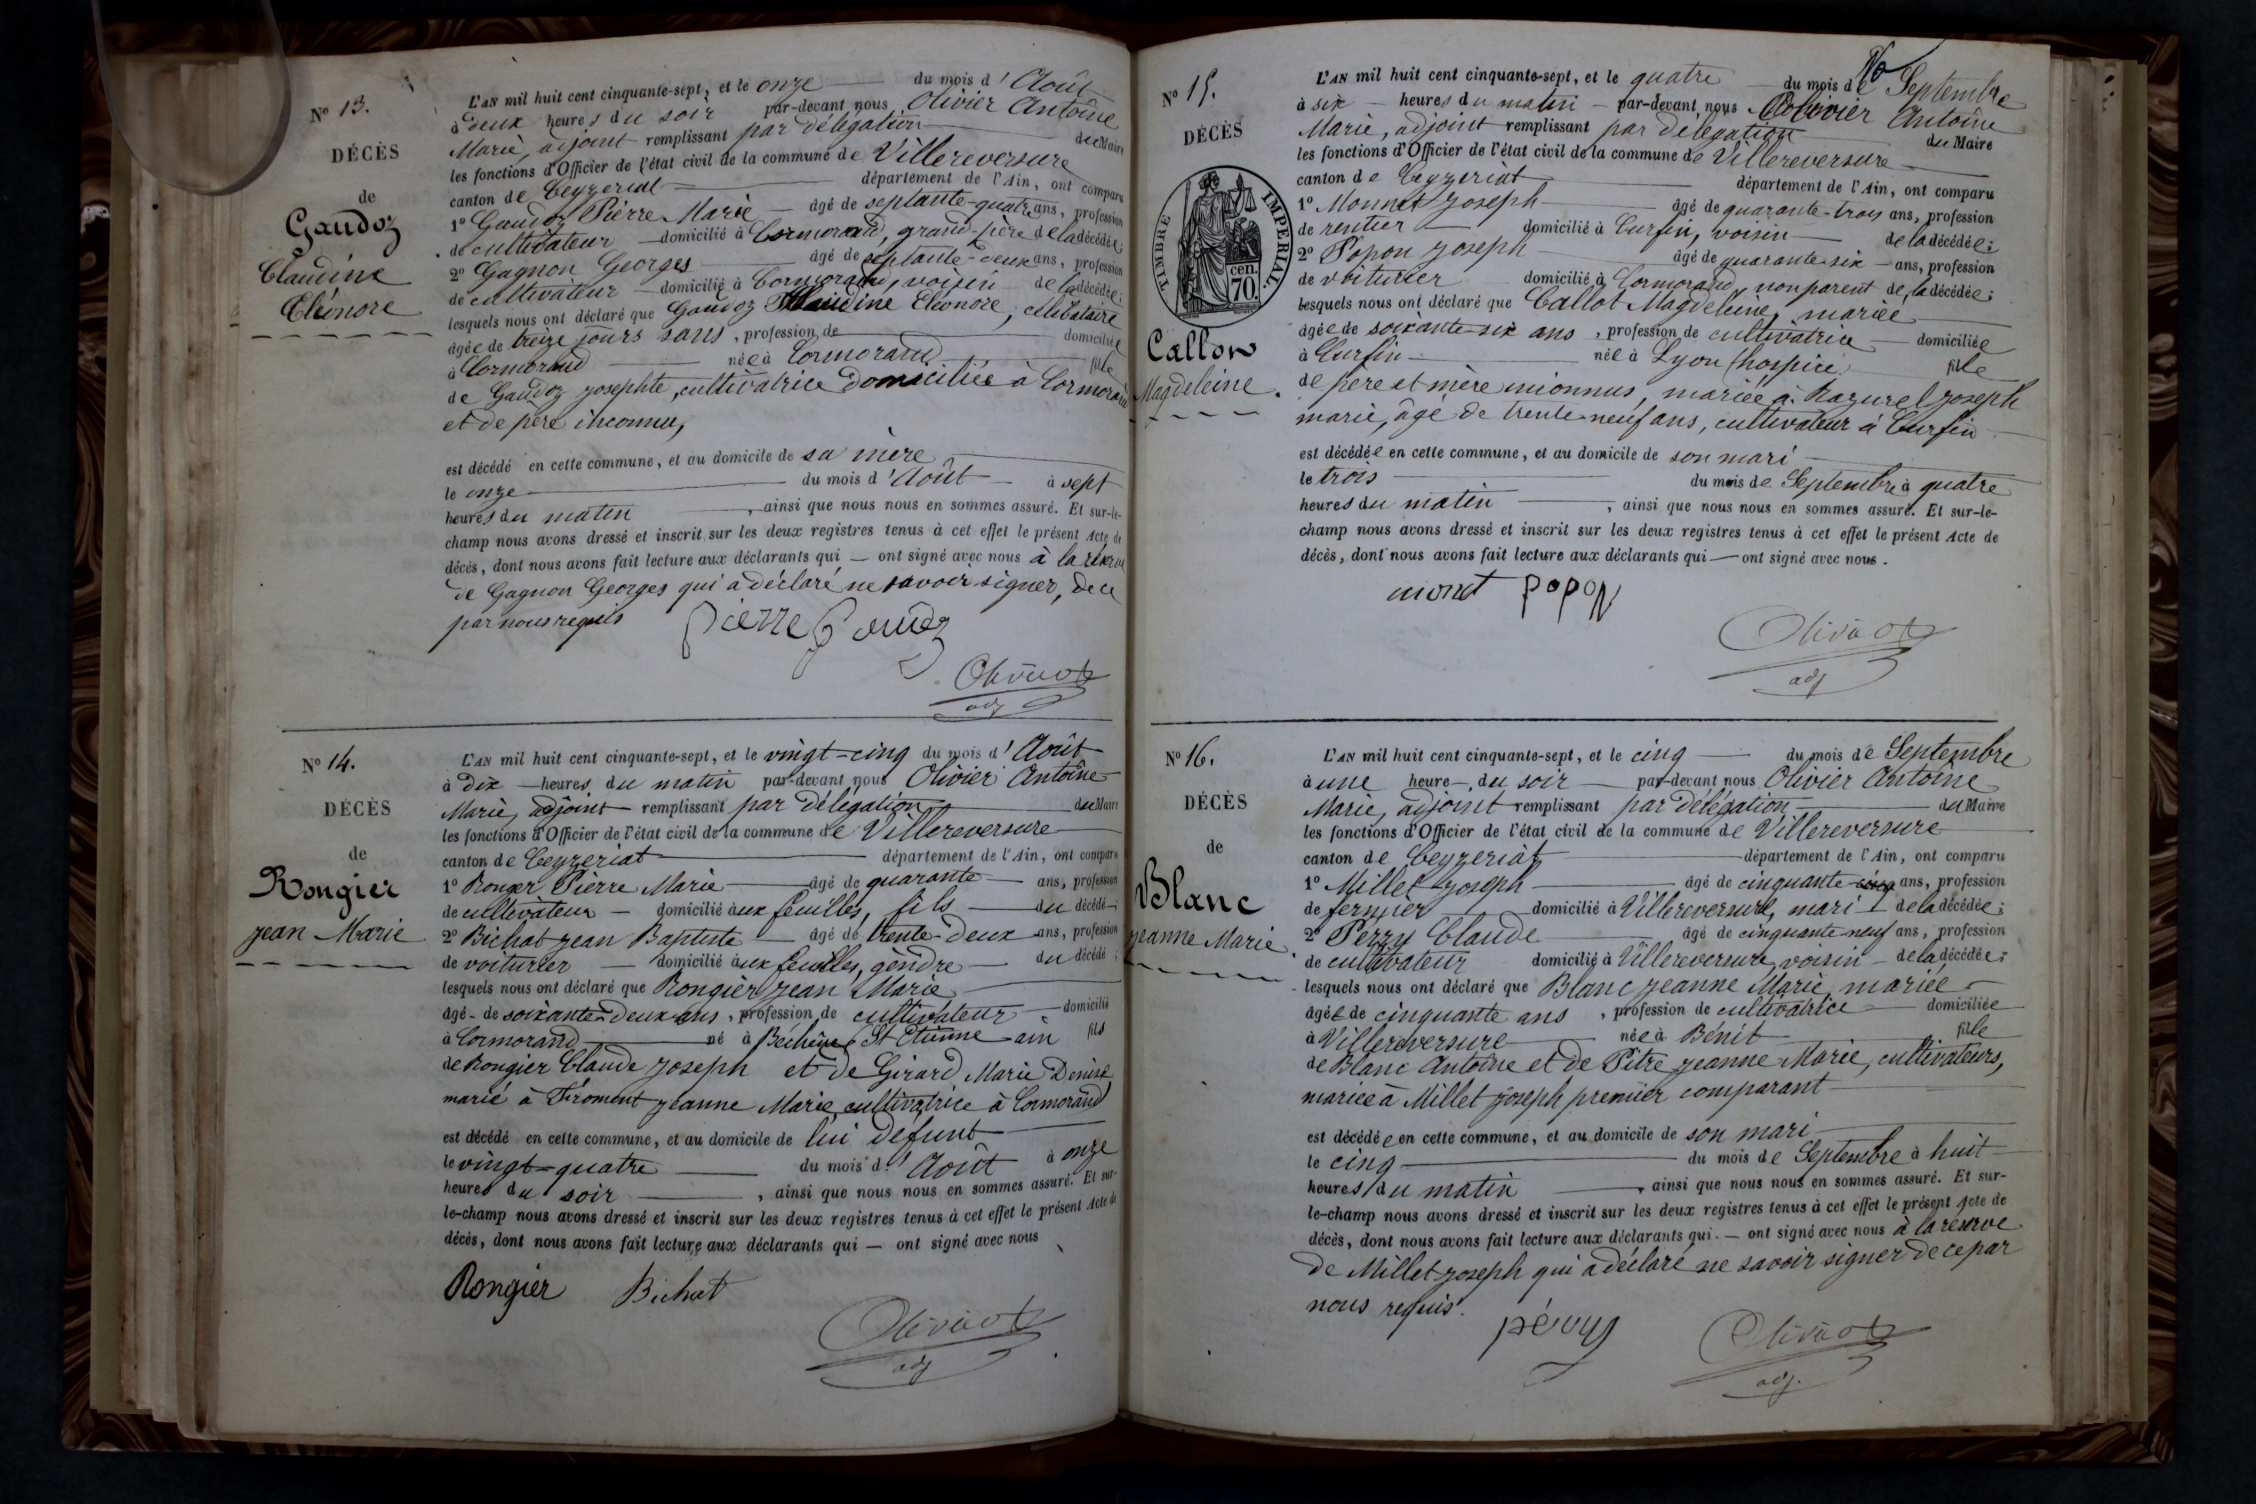 N° 13.
DÉCÈS
de
Gaudoz
Claudine
Eléonore
L'AN mil huit cent cinquante-sept, et le onze du mois d'Août
à deux heures du soir par-devant nous Olivier Antoine
Marie, adjoint remplissant par délégation du Maire
les fonctions d'Officier de l'état civil de la commune de Villereversure
canton de Ceyzeriat département de l'Ain, ont comparu
1° Gaudoz Pierre Marie âgé de septante-quatre ans, profession
de cultivateur domicilié à Cormorand, grand-père de la décédée;
2° Gagnon Georges âgé de septante-deux ans, profession
de cultivateur domicilié à Cormorand, voisin de la décédée;
lesquels nous ont déclaré que Gaudoz Claudine Eléonore, célibataire
âgée de treize jours sans, profession de domiciliée
à Cormorand née à Cormorand fille
de Gaudoz Josephte, cultivatrice domiciliée à Cormorand
et de père inconnu,
est décédé en cette commune, et au domicile de sa mère
le onze du mois d'Août à sept
heures du matin, ainsi que nous nous en sommes assuré. Et sur-le-
champ nous avons dressé et inscrit sur les deux registres tenus à cet effet le présent Acte de
décès, dont nous avons fait lecture aux déclarants qui — ont signé avec nous à la réserve
de Gagnon Georges qui a déclaré ne savoir signer, de ce
par nous requis
Pierre Gaudoz
Olivier
adj
N° 14.
DÉCÈS
de
Rongier
Jean Marie
L'AN mil huit cent cinquante-sept, et le vingt-cinq du mois d'Août
à dix heures du matin par-devant nous Olivier Antoine
Marie, adjoint remplissant par délégation du Maire
les fonctions d'Officier de l'état civil de la commune de Villereversure
canton de Ceyzeriat département de l'Ain, ont comparu
1° Rongier Pierre Marie âgé de quarante ans, profession
de cultivateur domicilié aux feuilles, fils du décédé;
2° Bichat Jean Baptiste âgé de trente-deux ans, profession
de voiturier domicilié aux feuilles, gendre du décédé;
lesquels nous ont déclaré que Rongier Jean Marie
âgé de soixante-deux ans, profession de cultivateur domicilié
à Cormorand né à St Etienne ain fils
de Rongier Claude Joseph et de Girard Marie Denise
marié à Froment Jeanne Marie, cultivatrice à Cormorand
est décédé en cette commune, et au domicile de lui défunt
le vingt-quatre du mois d'Août à onze
heures du soir, ainsi que nous nous en sommes assuré. Et sur-
le-champ nous avons dressé et inscrit sur les deux registres tenus à cet effet le présent Acte de
décès, dont nous avons fait lecture aux déclarants qui — ont signé avec nous
Rongier Bichat
Olivier
adj
N° 15.
DÉCÈS
TIMBRE IMPERIAL
cen.
70.
Callot
Magdeleine.
L'AN mil huit cent cinquante-sept, et le quatre du mois de Septembre
à six heures du matin par-devant nous Olivier Antoine
Marie, adjoint remplissant par délégation du Maire
les fonctions d'Officier de l'état civil de la commune de Villereversure
canton de Ceyzeriat département de l'Ain, ont comparu
1° Monnet Joseph âgé de quarante-trois ans, profession
de rentier domicilié à Curfin, voisin de la décédée;
2° Popon Joseph âgé de quarante-six ans, profession
de voiturier domicilié à Cormorand, non parent de la décédée;
lesquels nous ont déclaré que Callot Magdeleine, mariée
âgée de soixante-six ans, profession de cultivatrice domiciliée
à Curfin née à Lyon (hospice) fille
de père et mère inconnus, mariée à Razurel Joseph
Marie, âgé de trente-neuf ans, cultivateur à Curfin
est décédée en cette commune, et au domicile de son mari
le trois du mois de Septembre à quatre
heures du matin, ainsi que nous nous en sommes assuré. Et sur-le-
champ nous avons dressé et inscrit sur les deux registres tenus à cet effet le présent Acte de
décès, dont nous avons fait lecture aux déclarants qui — ont signé avec nous.
monet popon
Olivier
adj
N° 16.
DÉCÈS
de
Blanc
Jeanne Marie
L'AN mil huit cent cinquante-sept, et le cinq du mois de Septembre
à une heure du soir par-devant nous Olivier Antoine
Marie, adjoint remplissant par délégation du Maire
les fonctions d'Officier de l'état civil de la commune de Villereversure
canton de Ceyzeriat département de l'Ain, ont comparu
1° Millet Joseph âgé de cinquante-cinq ans, profession
de fermier domicilié à Villereversure, mari de la décédée;
2° Perry Claude âgé de cinquante-neuf ans, profession
de cultivateur domicilié à Villereversure, voisin de la décédée;
lesquels nous ont déclaré que Blanc Jeanne Marie, mariée
âgée de cinquante ans, profession de cultivatrice domiciliée
à Villereversure née à Bénit fille
de Blanc Antoine et de Pitre Jeanne Marie, cultivateurs,
mariée à Millet Joseph premier comparant
est décédée en cette commune, et au domicile de son mari
le cinq du mois de Septembre à huit
heures du matin, ainsi que nous nous en sommes assuré. Et sur-
le-champ nous avons dressé et inscrit sur les deux registres tenus à cet effet le présent Acte de
décès, dont nous avons fait lecture aux déclarants qui — ont signé avec nous à la réserve
de Millet Joseph qui a déclaré ne savoir signer de ce par
nous requis.
Olivier
adj.